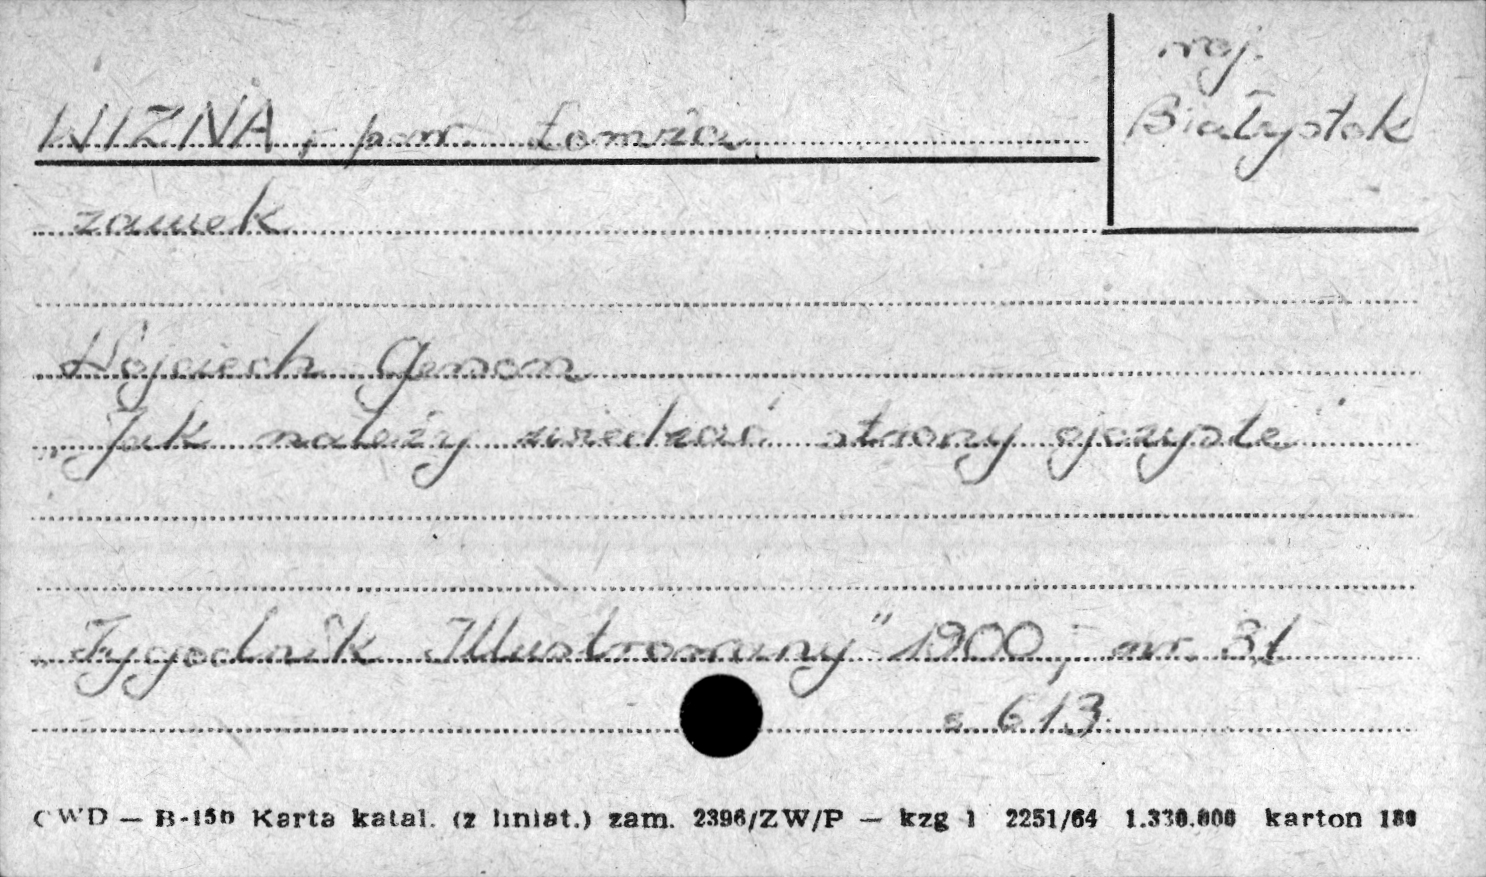 woj.
Białystok
WIZNA, pow. Łomża
zamek
Wojciech Gerson
„Jak należy zwiedzać strony ojczyste"
„Tygodnik Illustrowany" 1900, nr. 31
s. 613.
CWD — B-15b Karta katal. (z liniat.) zam. 2396/ZW/P — kzg 1 2251/64 1.330.000 karton 180